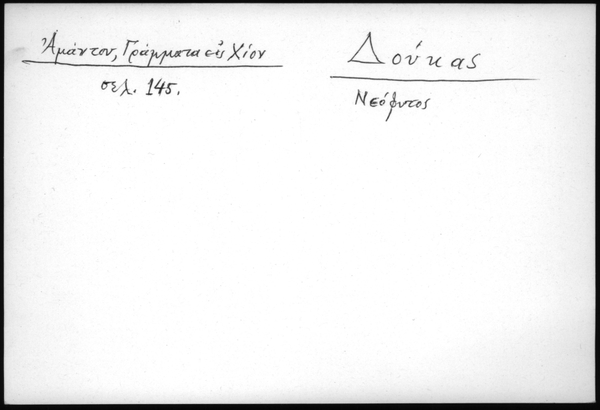 Ἀμάντου, Γράμματα εἰς Χίον
σελ. 145.
Δούκας
Νεόφυτος